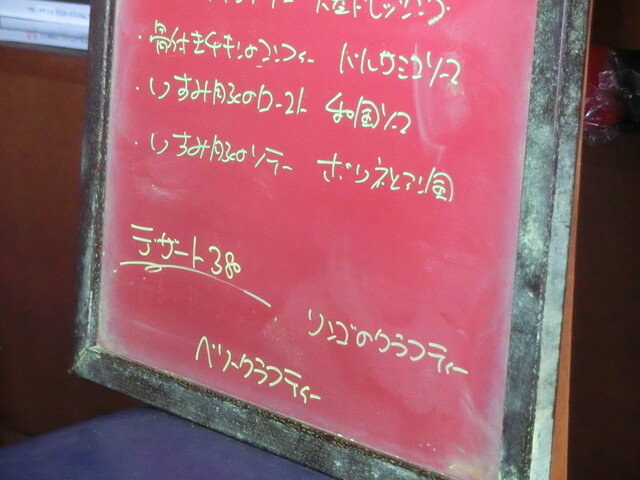 大豆ドレッシング
・骨付きチキンのコンフィー バルサミコソース
・いすみ豚のロースト 和風ソース
・いすみ豚のソテー ポリネシアン風
デザート 380
リンゴのクラフティー
ベリークラフティー